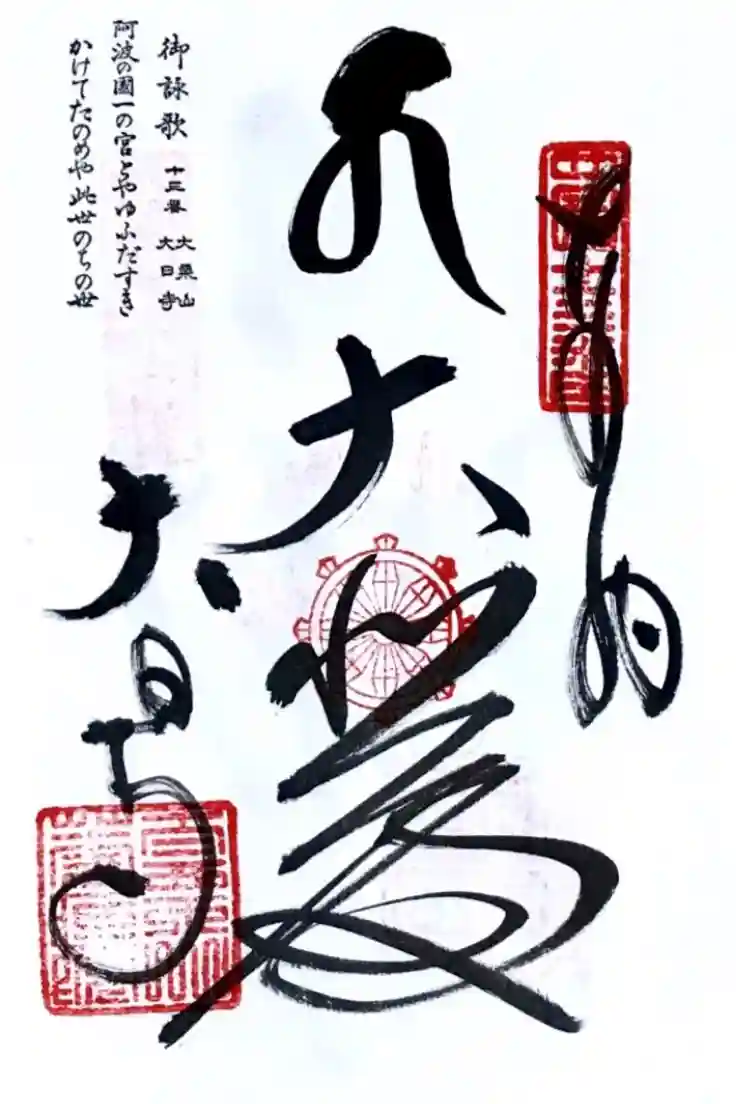 奉納
大悲
御詠歌
十三番
大栗山
大日寺
阿波の國一の宮とやゆふだすき
かけてたのめや此世のちの世
大日寺